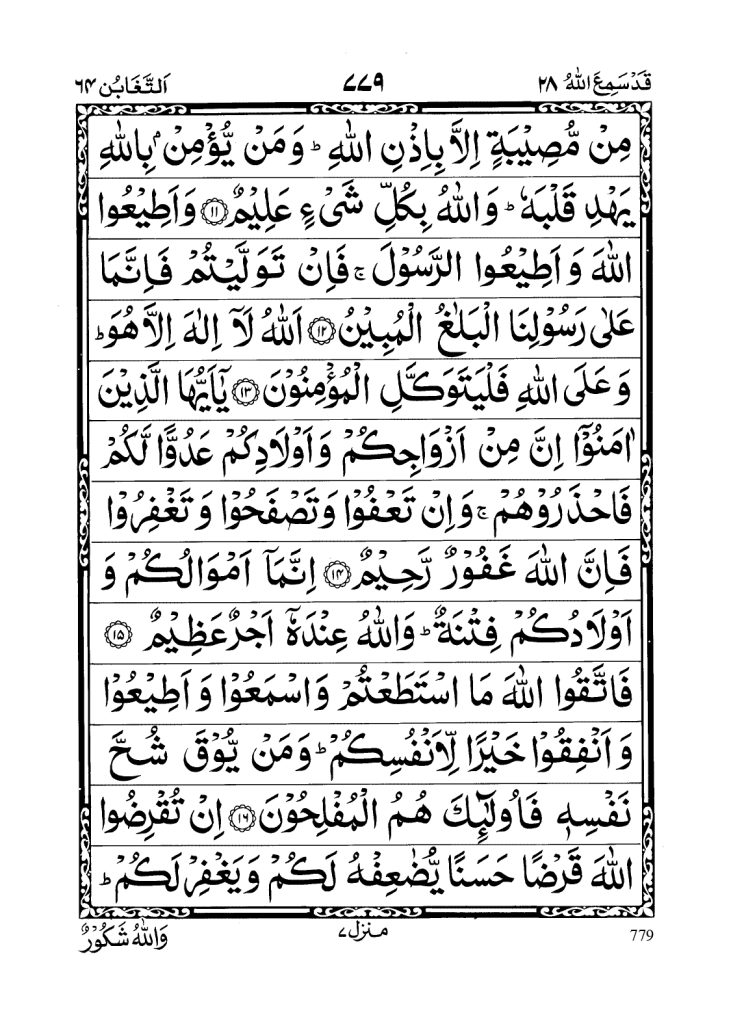 قَدْ سَمِعَ اللّٰهُ ۲۸ ۷۷۹ اَلتَّغَابُن ۶۴
مِنْ مُّصِیْبَةٍ اِلَّا بِاِذْنِ اللّٰهِ ؕ وَ مَنْ یُّؤْمِنْۢ بِاللّٰهِ
یَهْدِ قَلْبَهٗ ؕ وَاللّٰهُ بِكُلِّ شَیْءٍ عَلِیْمٌ ﴿۱۱﴾ وَاَطِیْعُوا
اللّٰهَ وَ اَطِیْعُوا الرَّسُوْلَ ۚ فَاِنْ تَوَلَّیْتُمْ فَاِنَّمَا
عَلٰی رَسُوْلِنَا الْبَلٰغُ الْمُبِیْنُ ﴿۱۲﴾ اَللّٰهُ لَاۤ اِلٰهَ اِلَّا هُوَ ؕ
وَ عَلَی اللّٰهِ فَلْیَتَوَكَّلِ الْمُؤْمِنُوْنَ ﴿۱۳﴾ یٰۤاَیُّهَا الَّذِیْنَ
اٰمَنُوْۤا اِنَّ مِنْ اَزْوَاجِكُمْ وَ اَوْلَادِكُمْ عَدُوًّا لَّكُمْ
فَاحْذَرُوْهُمْ ۚ وَاِنْ تَعْفُوْا وَ تَصْفَحُوْا وَ تَغْفِرُوْا
فَاِنَّ اللّٰهَ غَفُوْرٌ رَّحِیْمٌ ﴿۱۴﴾ اِنَّمَاۤ اَمْوَالُكُمْ وَ
اَوْلَادُكُمْ فِتْنَةٌ ؕ وَاللّٰهُ عِنْدَهٗۤ اَجْرٌ عَظِیْمٌ ﴿۱۵﴾
فَاتَّقُوا اللّٰهَ مَا اسْتَطَعْتُمْ وَاسْمَعُوْا وَ اَطِیْعُوْا
وَ اَنْفِقُوْا خَیْرًا لِّاَنْفُسِكُمْ ؕ وَمَنْ یُّوْقَ شُحَّ
نَفْسِهٖ فَاُولٰٓئِكَ هُمُ الْمُفْلِحُوْنَ ﴿۱۶﴾ اِنْ تُقْرِضُوا
اللّٰهَ قَرْضًا حَسَنًا یُّضٰعِفْهُ لَكُمْ وَ یَغْفِرْ لَكُمْ ؕ
779 منزل۷ وَاللّٰهُ شَكُوْرٌ